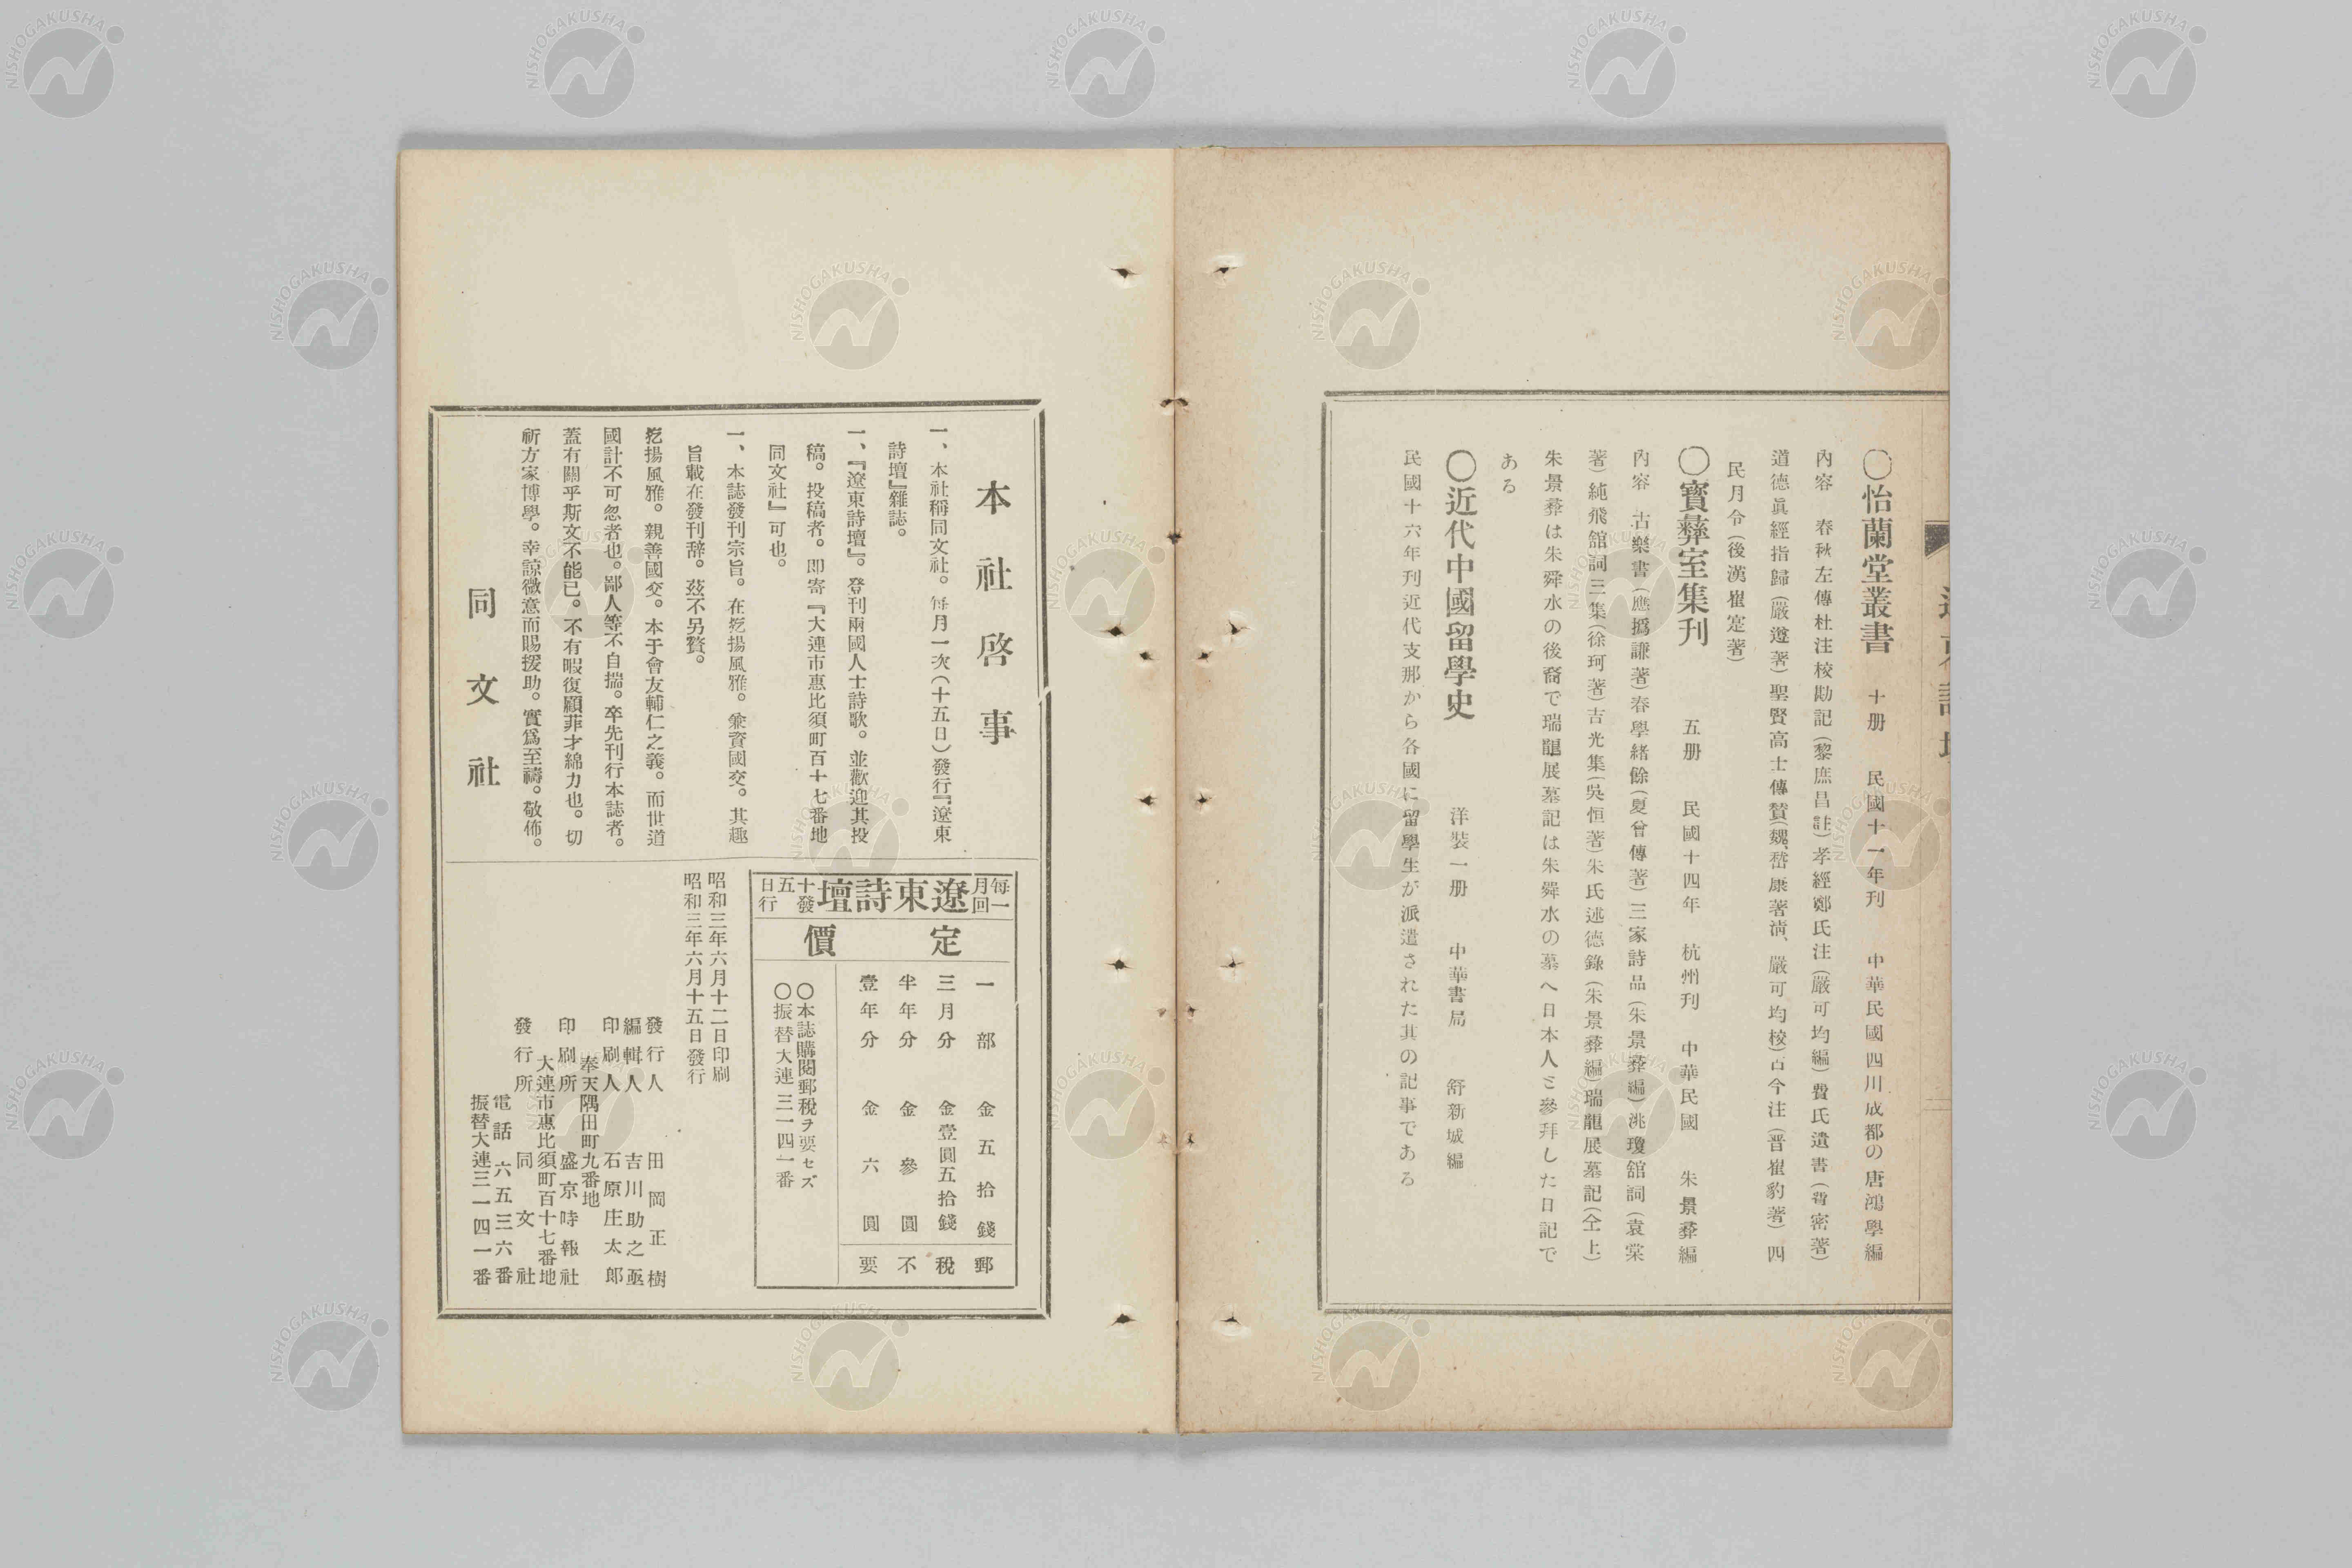 〇怡蘭堂叢書　十册　民國十一年刊　中華民國四川成都の唐鴻學編
內容　春秋左傳杜注校勘記（黎庶昌註）孝經鄭氏注（嚴可均編）費氏遺書（費密著）
道德眞經指歸（嚴遵著）聖賢高士傳贊（魏、嵆康著淸、嚴可均校）古今注（晋崔豹著）四
民月令（後漢崔寔著）
〇寶彝室集刊　五册　民國十四年　杭州刊　中華民國　朱景彝編
內容　古樂書（應撝謙著）春學緒餘（夏曾傳著）三家詩品（朱景彝編）洮瓊舘詞（袁棠
著）純飛舘詞三集（徐珂著）古光集（吳恒著）朱氏述德錄（朱景彝編）瑞龍展墓記（仝上）
朱景彝は朱舜水の後裔で瑞龍展墓記は朱舜水の墓へ日本人と參拜した日記で
ある
〇近代中國留學史　洋裝一册　中華書局　舒新城編
民國十六年刊近代支那から各國に留學生が派遣された其の記事である
本社啓事
一、本社稱同文社。每月一次（十五日）發行『遼東
詩壇』雜誌。
一、『遼東詩壇』。登刊兩國人士詩歌。並歡迎其投
稿。投稿者。即寄『大連市惠比須町百十七番地
同文社』可也。
一、本誌發刊宗旨。在挖揚風雅。兼資國交。其趣
旨載在發刊辞。茲不另贅。
挖揚風雅。親善國交。本于會友輔仁之義。而世道
國計不可忽者也。鄙人等不自揣。卒先刊行本誌者。
蓋有關乎斯文不能已。不有暇復顧菲才綿力也。切
祈方家博學。幸諒微意而賜援助。實爲至禱。敬佈。
同文社
每月一回
遼東詩壇
十五日發行
定價
一部　金五拾錢　郵
三月分　金壹圓五拾錢　稅
半年分　金參圓　不
壹年分　金六圓　要
〇本誌購閱郵稅ヲ要セズ
〇振替大連三一四一番
昭和三年六月十二日印刷
昭和三年六月十五日發行
發行人　田岡正樹
編輯人　吉川助之亟
印刷人　石原庄太郎
奉天隅田町九番地
印刷所　盛京時報社
大連市惠比須町百十七番地
發行所　同文社
電話六五三六番
振替大連三一四一番